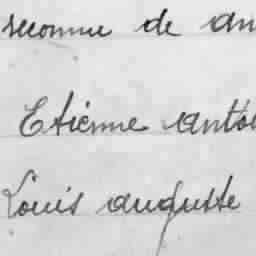 reconnu de an
Etienne anto
Louis auguste